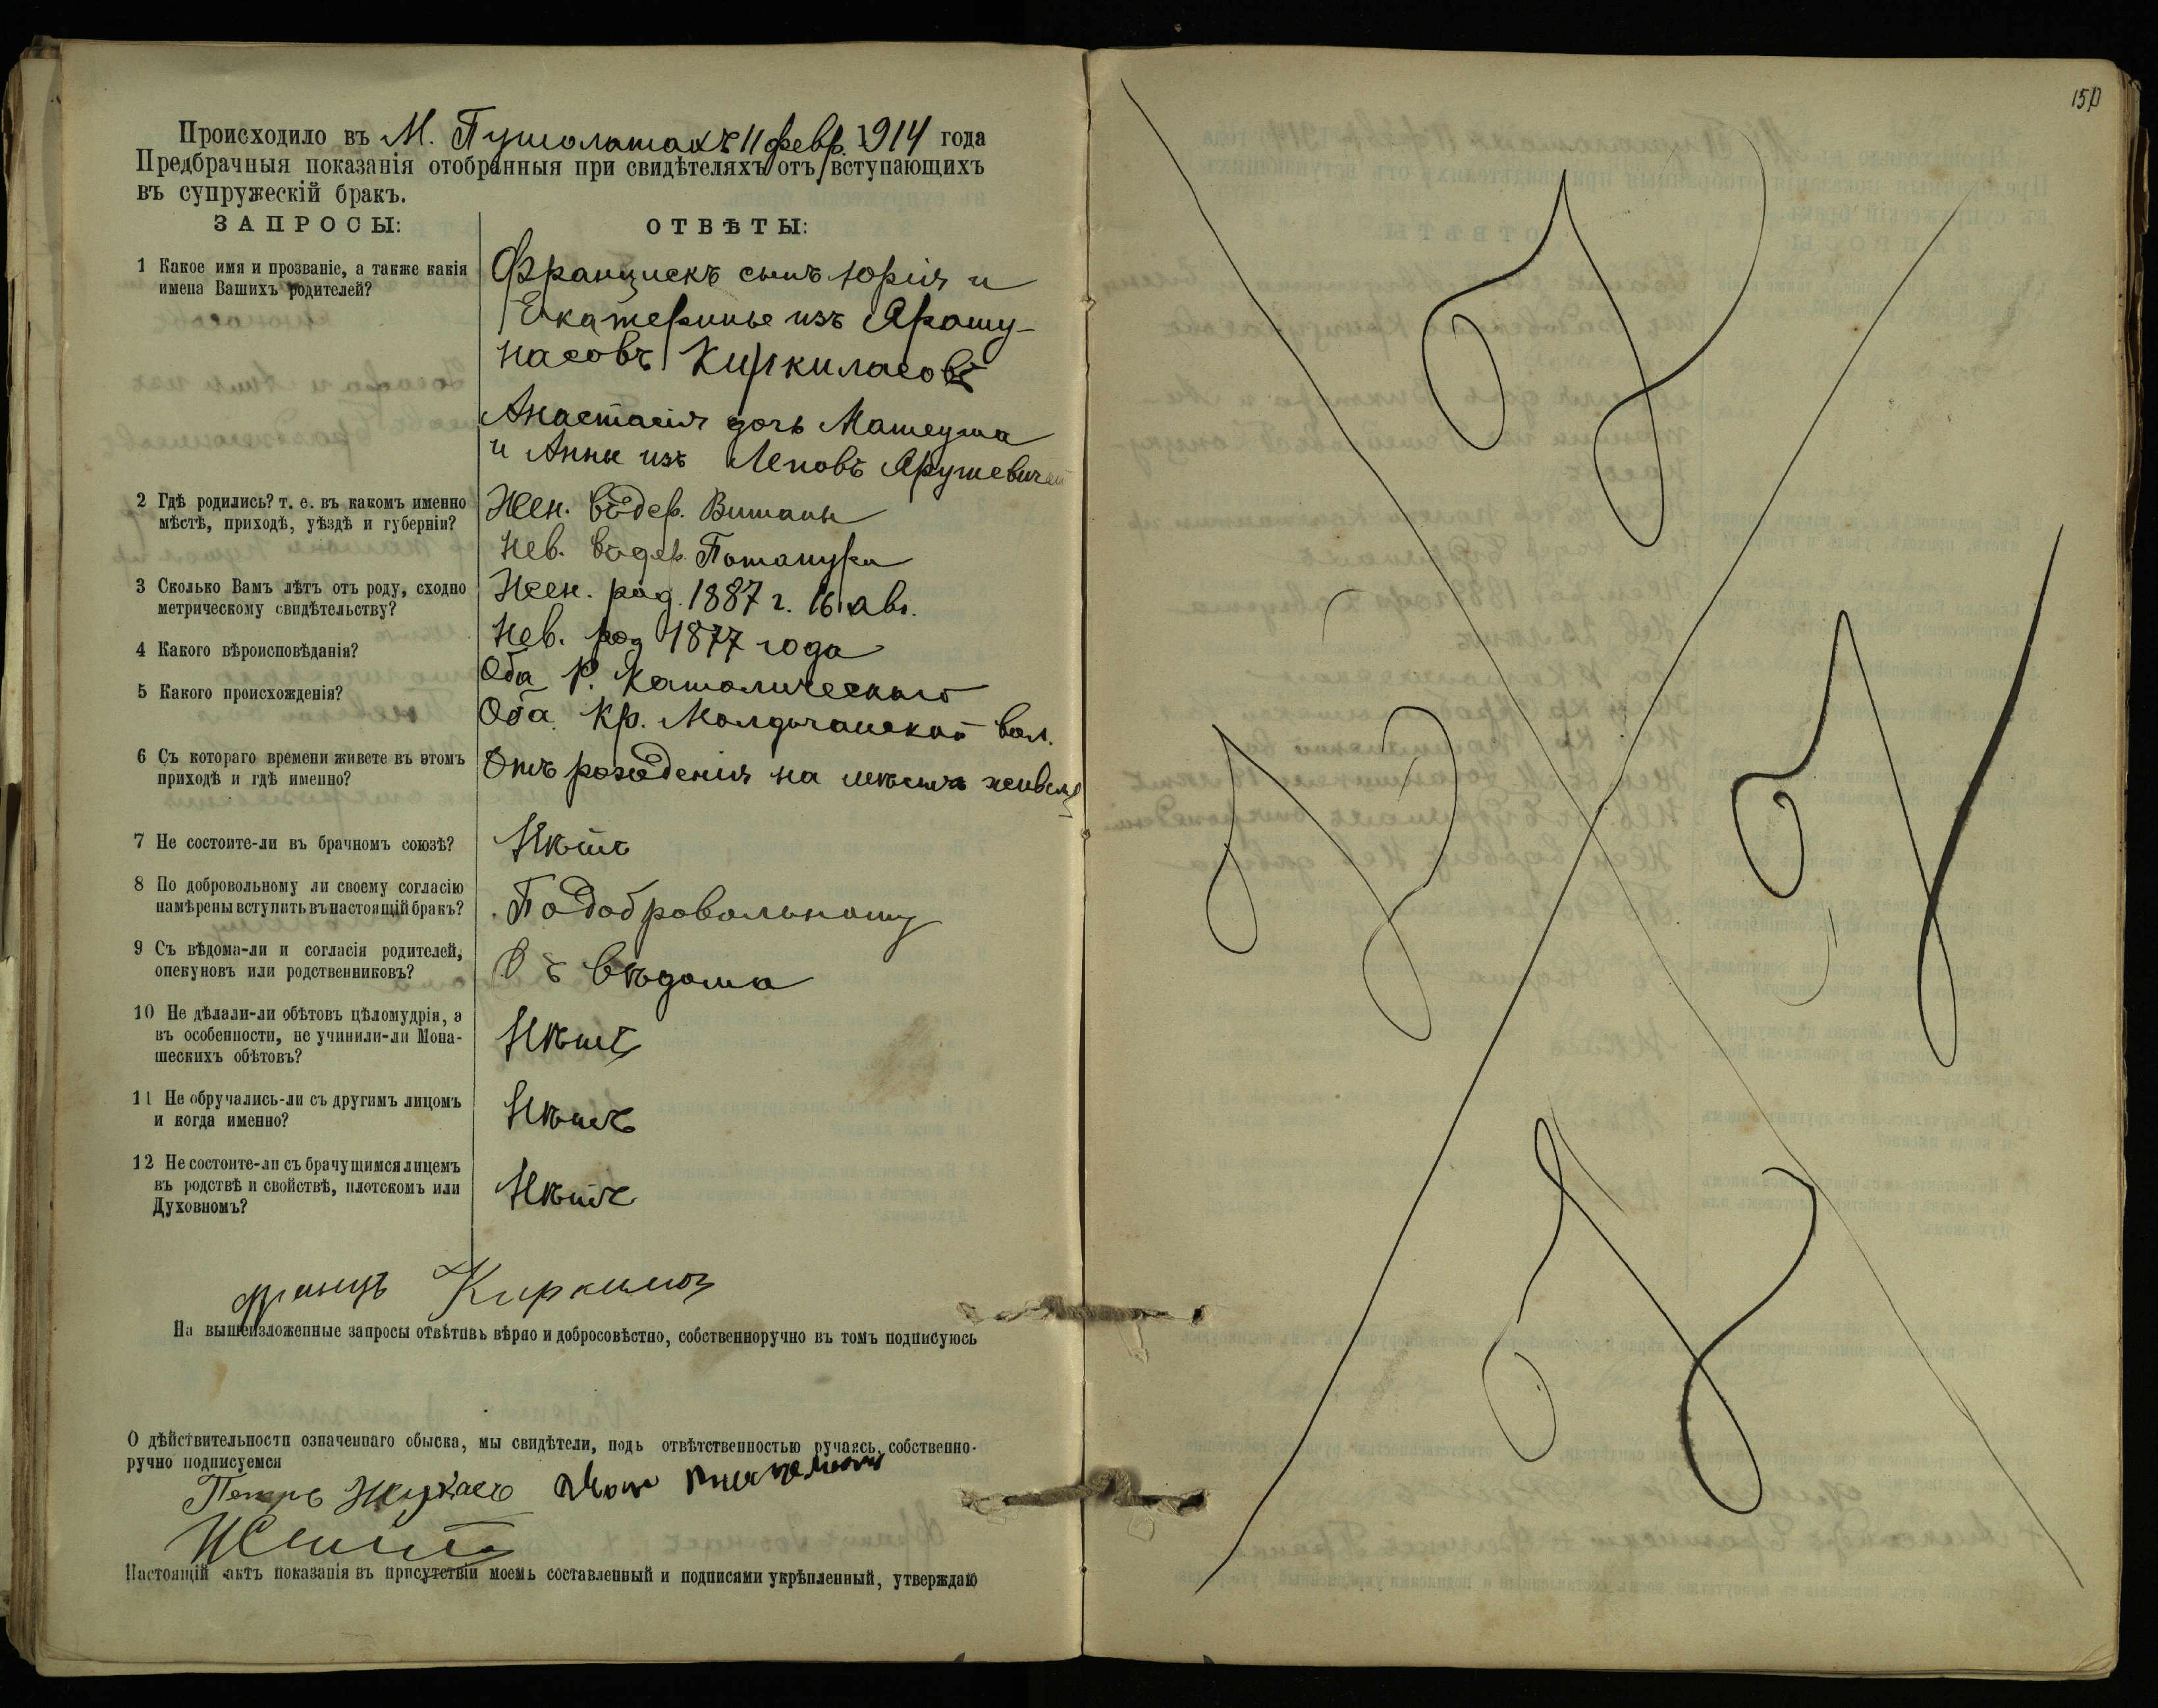 150
Происходило въ М. Пушолатахъ 11 февр. 1914 года
Предбрачныя показанія отобранныя при свидѣтеляхъ отъ вступающихъ
въ супружескій бракъ.
ЗАПРОСЫ:
ОТВѢТЫ:
1 Какое имя и прозваніе, а также какія
имена Вашихъ родителей?
Францискъ сынъ Юрія и
Екатерины изъ Ярошу-
насовъ Киркиласовъ
Анастасія дочь Матеуша
и Анны изъ Леповъ Ярушевичей
2 Гдѣ родились? т. е. въ какомъ именно
мѣстѣ, приходѣ, уѣздѣ и губерніи?
Жен. въ дер. Виташи
Нев. въ дер.
3 Сколько Вамъ лѣтъ отъ роду, сходно
метрическому свидѣтельству?
Жен. род. 1887 г. 16 авг.
Нев. род 1877 года
4 Какого вѣроисповѣданія?
Оба Р. Католическаго
5 Какого происхожденія?
Оба Кр. вол.
6 Съ котораго времени живете въ этомъ
приходѣ и гдѣ именно?
Отъ рожденія на мѣстѣ
7 Не состоите-ли въ брачномъ союзѣ?
Нѣтъ
8 По добровольному ли своему согласію
намѣрены вступить въ настоящій бракъ?
По добровольному
9 Съ вѣдома-ли и согласія родителей,
опекуновъ или родственниковъ?
Съ вѣдома
10 Не дѣлали-ли обѣтовъ цѣломудрія, а
въ особенности, не учинили-ли Мона-
шескихъ обѣтовъ?
Нѣтъ
11 Не обручались-ли съ другимъ лицомъ
и когда именно?
Нѣтъ
12 Не состоите-ли съ брачущимся лицемъ
въ родствѣ и свойствѣ, плотскомъ или
Духовномъ?
Нѣтъ
Францъ
На вышеизложенные запросы отвѣтивъ вѣрно и добросовѣстно, собственноручно въ томъ подписуюсь
О дѣйствительности означеннаго обыска, мы свидѣтели, подъ отвѣтственностью ручаясь, собственно-
ручно подписуемся
Петръ
Настоящій актъ показанія въ присутствіи моемъ составленный и подписями укрѣпленный, утверждаю